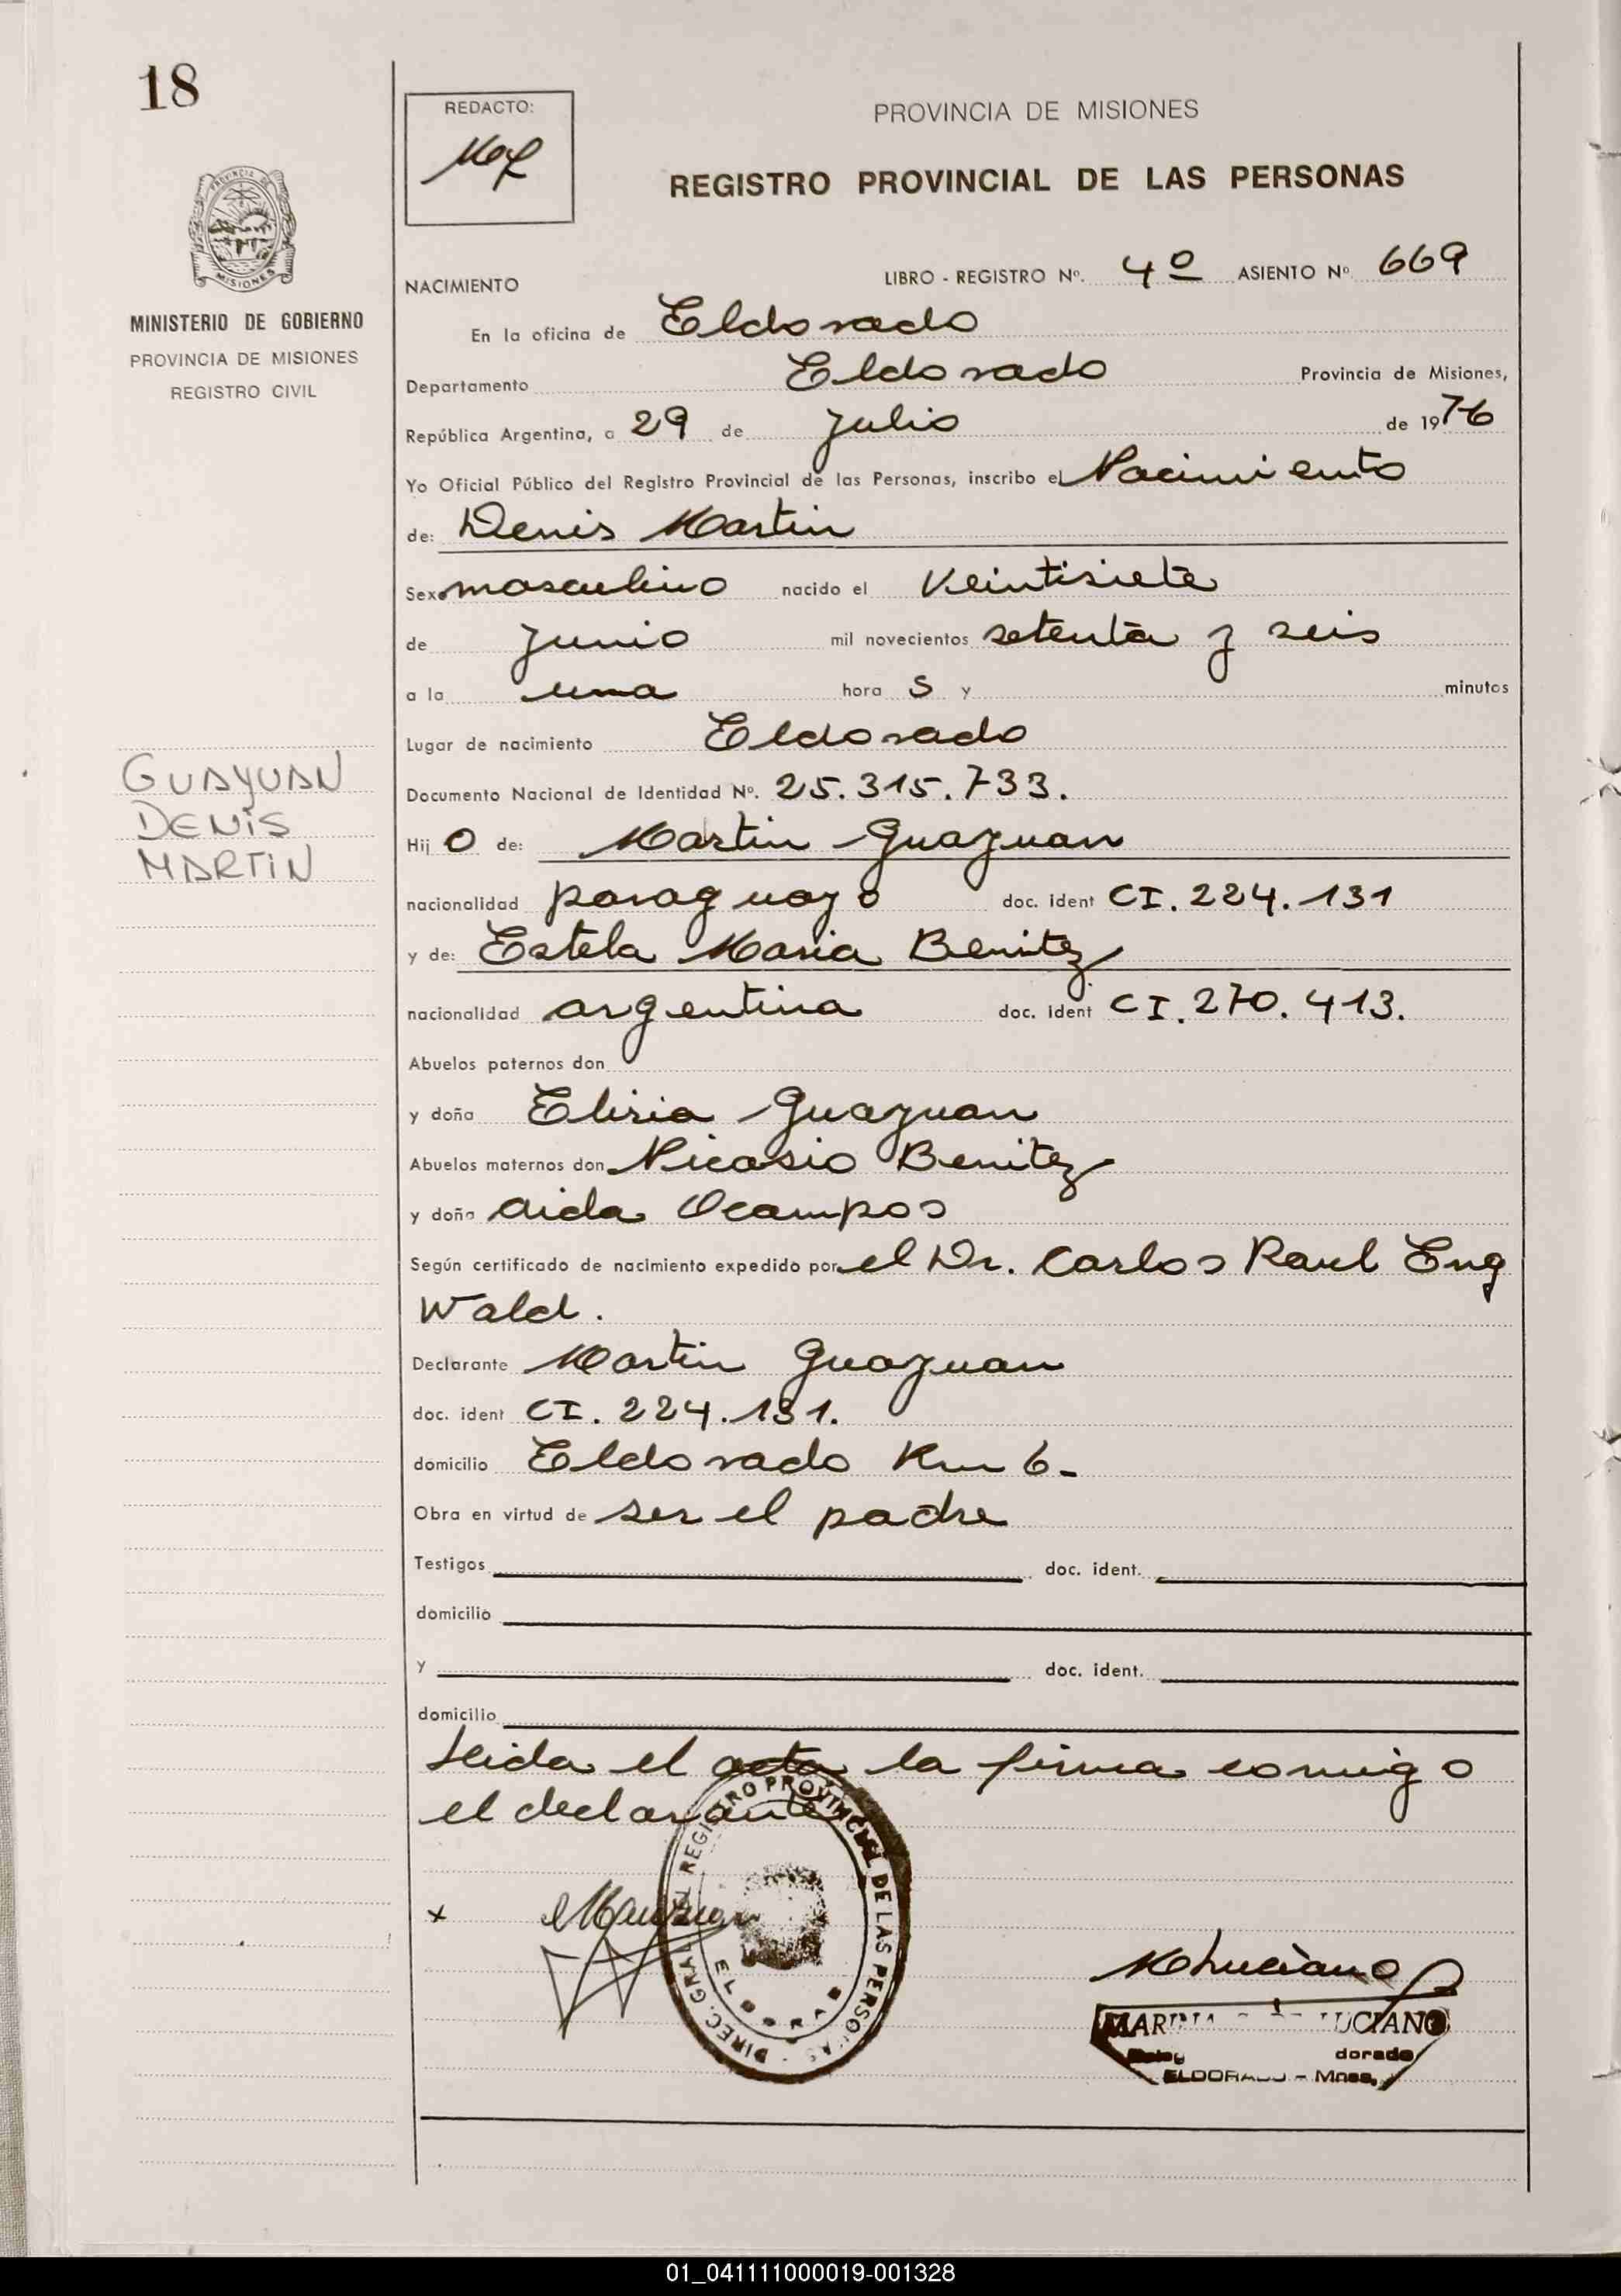 18
REDACTO:
PROVINCIA DE MISIONES
REGISTRO PROVINCIAL DE LAS PERSONAS
PROVINCIA DE
MISIONES
MINISTERIO DE GOBIERNO
PROVINCIA DE MISIONES
REGISTRO CIVIL
NACIMIENTO
LIBRO - REGISTRO Nº. 4º ASIENTO Nº 669
En la oficina de Eldorado
Departamento Eldorado Provincia de Misiones,
República Argentina, a 29 de Julio de 1976
Yo Oficial Público del Registro Provincial de las Personas, inscribo el Nacimiento
de: Denis Martin
Sexo masculino nacido el Veintisiete
de Junio mil novecientos setenta y seis
a la una hora S y minutos
Lugar de nacimiento Eldorado
Documento Nacional de Identidad Nº. 25.315.733.
GUAYUAN
DENIS
MARTIN
Hij O de: Martin Guayuan
nacionalidad paraguayo doc. ident CI. 224.131
y de: Estela Maria Benitez
nacionalidad argentina doc. ident CI. 270.413.
Abuelos paternos don
y doña Elisia Guayuan
Abuelos maternos don Nicasio Benitez
y doña Aida Ocampos
Según certificado de nacimiento expedido por el Dr. Carlos Raul Eng
Wald.
Declarante Martin Guayuan
doc. ident CI. 224.131.
domicilio Eldorado Km 6-
Obra en virtud de ser el padre
Testigos doc. ident.
domicilio
y doc. ident.
domicilio
Leida el acta la firma conmigo
el declarante
DIREC. GRAL REGISTRO PROVINCIAL DE LAS PERSONAS
x
MLuciano
LUCIANO
dorado
ELDORADO - Mnes.
01_041111000019-001328